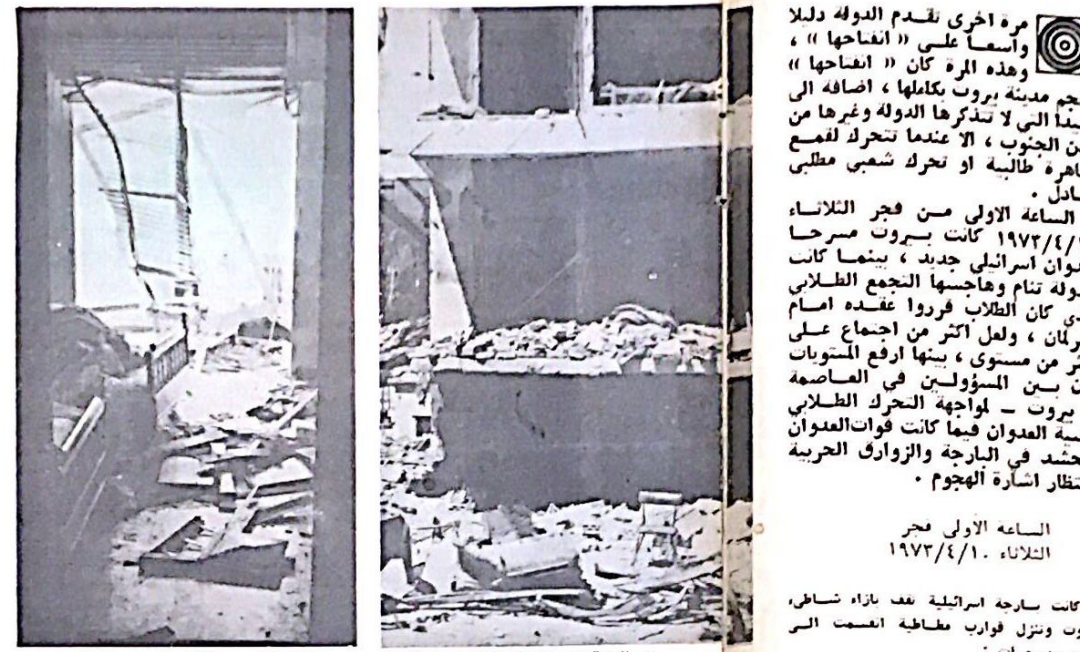 مرة اخرى تقدم الدولة دليلا
واسعــا علــى « انفتاحها » ،
وهذه المرة كان « انفتاحها »
جم مدينة بيروت بكاملها ، اضافة الى
يدا التي لا تتذكرها الدولة وغيرها من
ن الجنوب ، الا عندما تتحرك لقمــع
اهرة طالبية او تحرك شعبي مطلبي
ادل .
الساعة الاولى مــن فجر الثلاثــاء
١٩٧٣/٤/ كانت بــيروت مسرحــا
دوان اسرائيلي جديد ، بينمــا كانت
ولة تنام وهاجسها التجمع الطــلابي
ي كان الطلاب قرروا عقــده امــام
رلمان ، ولعل اكثر من اجتماع علــى
ر من مستوى ، بينها ارفع المستويات
ن بــين المسؤولــين في العــاصمة
بيروت ــ لمواجهة التحرك الطــلابي
سية العدوان فيما كانت قوات العدوان
حشد في البارجة والزوارق الحربية
نتظار اشارة الهجوم .
الساعة الاولى فجر
الثلاثاء ١٩٧٣/٤/١٠
كانت بــارجة اسرائيلية تقف بازاء شــاطىء
وت وتنزل قوارب مطــاطية انقسمت الــى